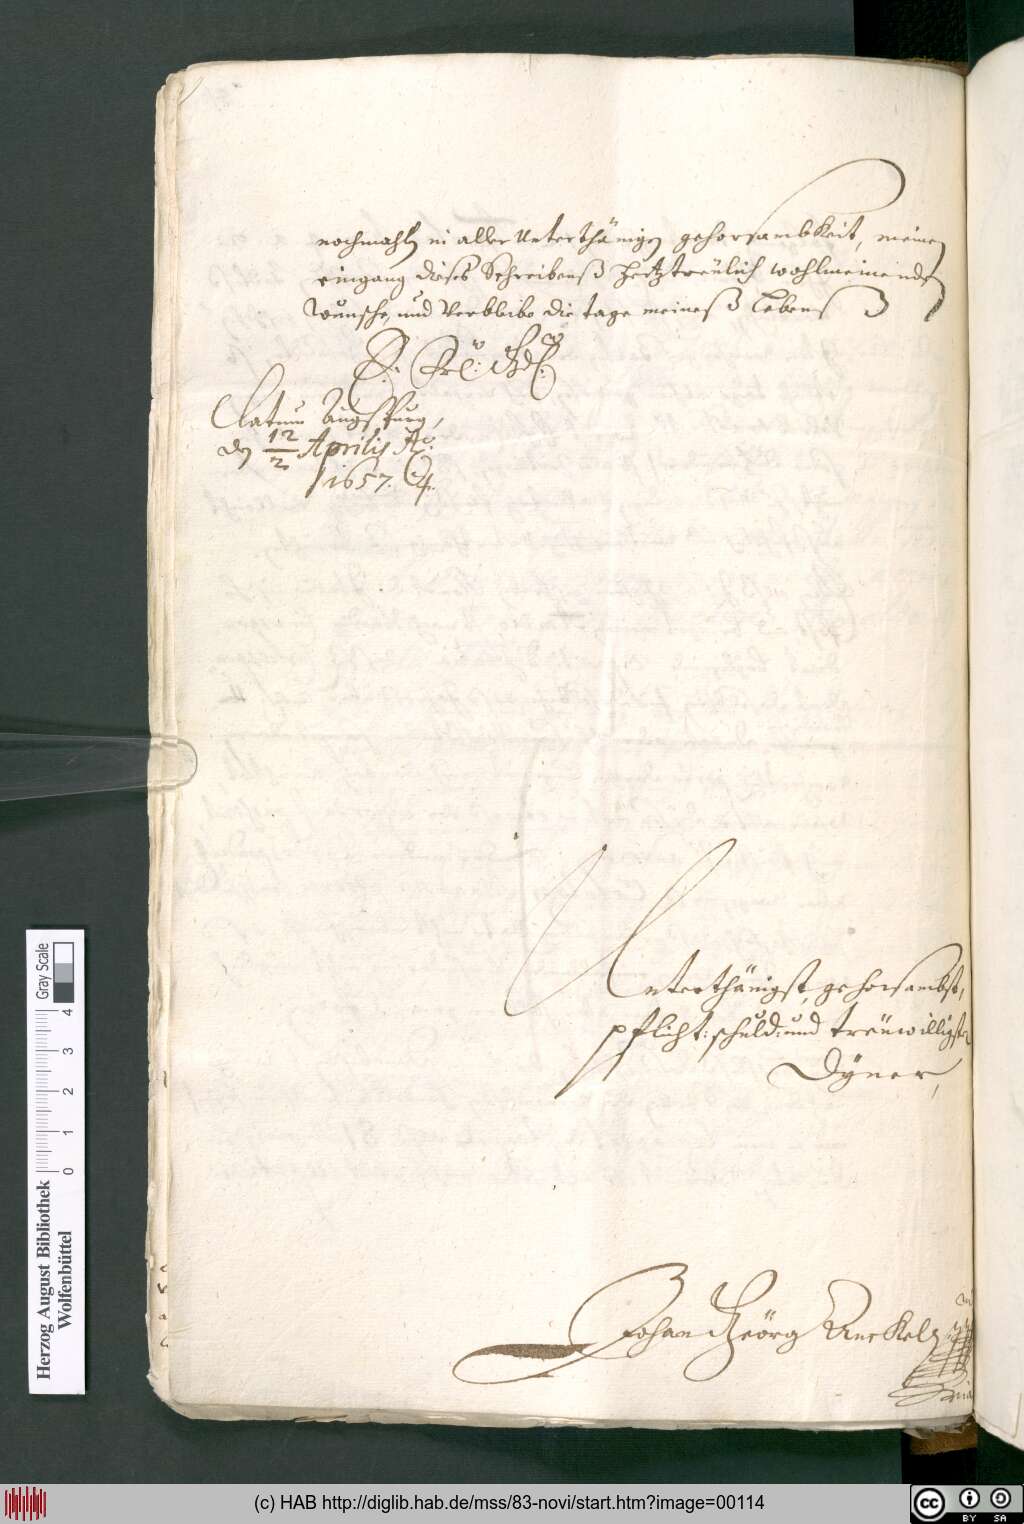 nochmahlß in aller Unterthänigen gehorsambkeit, meinen
eingang dieses Schreibenß hertztreülich wohlmeinenden
wunsche, und Verbleibe die tage meineß Lebenß
E. Frl: Gd:
Datum Augspurg,
den 12/2 Aprilis Ao:
1657.
Unterthänigst, gehorsambst,
pflicht: schuld: und treüwilligster
Dÿner,
Johan Geörg Anckel
Gray Scale
4
3
2
1
0
Herzog August Bibliothek
Wolfenbüttel
(c) HAB http://diglib.hab.de/mss/83-novi/start.htm?image=00114
cc BY SA